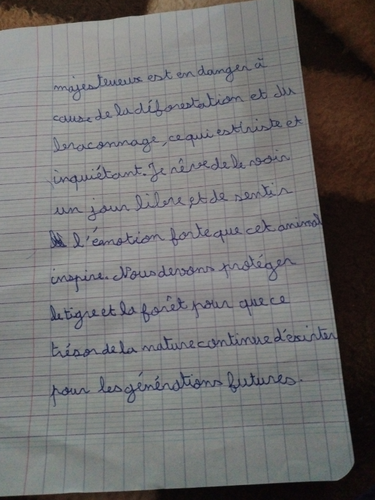 majesteueux est en danger à
cause de la déforestation et du
braconnage, ce qui est triste et
inquiétant. Je rêve de le voir
un jour libre, et de sentir
l'émotion forte que cet animal
inspire. Nous devons protéger
le tigre et la forêt pour que ce
trésor de la nature continue d'exister
pour les générations futures.